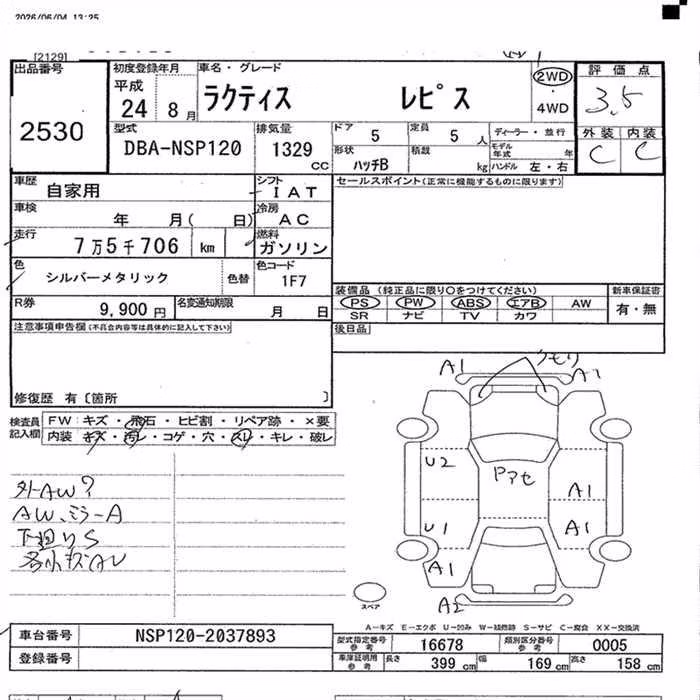 2026/06/04 13:25
[2129]
出品番号
2530
初度登録年月
平成
24 8月
車名・グレード
ラクティス レピス
2WD
4WD
評価点
3.5
外装 内装
C C
型式
DBA-NSP120
排気量
1329
CC
ドア
5
定員
5 人
ディーラー・並行
モデル年式 年
形状
ハッチB
積載
kg
ハンドル 左・右
車歴
自家用
シフト
IAT
セールスポイント(正常に機能するものに限ります)
車検
年 月( 日)
冷房
AC
走行
7万5千706 km
燃料
ガソリン
色
シルバーメタリック
色替
色コード
1F7
装備品 (純正品に限り○をつけてください)
新車保証書
PS PW ABS エアB AW
SR ナビ TV カワ
有・無
R券
9,900 円
名変通知期限
月 日
後日品
注意事項申告欄(不具合内容等は具体的に記入して下さい)
修復歴 有〔箇所 〕
検査員
記入欄
FW: キズ・飛石・ヒビ割・リペア跡・×要
内装: キズ・汚レ・コゲ・穴・スレ・キレ・破レ
外AW?
AW、ミラーA
下廻りS
各小キズAU
A1
クモリ
U2
Pアセ
A1
U1
A1
A1
A2
スペア
A-キズ E-エクボ U-凹み W-補修跡 S-サビ C-腐食 XX-交換済
車台番号
NSP120-2037893
登録番号
型式指定番号
参考
16678
類別区分番号
参考
0005
車庫証明用
参考
長さ 399 cm 幅 169 cm 高さ 158 cm